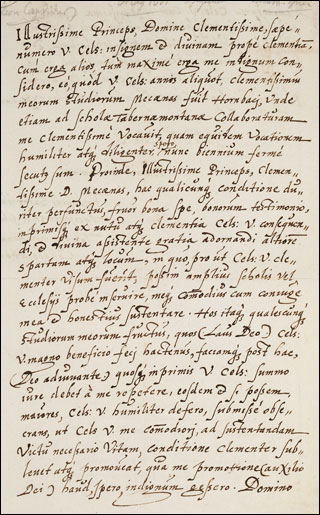 Illustrissime Princeps, Domine Clementissime, sæpe
numero V. Cels: insignem et divinam prope clementiam,
Cum erga alios tum maxime erga me indignum con
sidero, eo quod V. Cels: annos aliquot, clementissimus
meorum studiorum Mecænas fuit Hornbaci, unde
etiam ad scholæ Tabernæmontanæ Collaboraturam
me clementissime Vocavit, quam equidem Vocationem
humiliter atq; diligenter, nunc biennium ferme
secutus sum. Proinde, Illustrissime Princeps, Clemen-
tissime D. Mecænas, hac qualicunq; conditione du,
riter perfunctus, fruor bona spe, bonorum testimonio,
inprimisq; ex nutu atq; clementia Cels: V. consequen-
di, et divina assistente gratia adornandi altiorem
Spartam atq; locum, in quo, pro ut Cels: V. cle-
menter visum fuerit, possim amplius scholis vel
Ecclesijs probe inservire, meq; comodius cum coniuge
mea et honestius sustentare. Hos itaq; qualescunq;
studiorum meorum fructus, quos (Laus Deo) Cels:
V. magno beneficio feci hactenus, faciamq; post hac,
(Deo adiuvante) quosq; inprimis V. Cels: summo
iure debet à me repetere, eosdem et si possem
maiores, Cels: V. humiliter defero, submisse obse-
crans, ut Cels V. me comodiori, ad sustentandam
Victu necessario Vitam, conditione Clementer sub-
levet atq; promoveat, qua me promotione (auxilio
Dei) haud, spero, indignum gessero. Domino